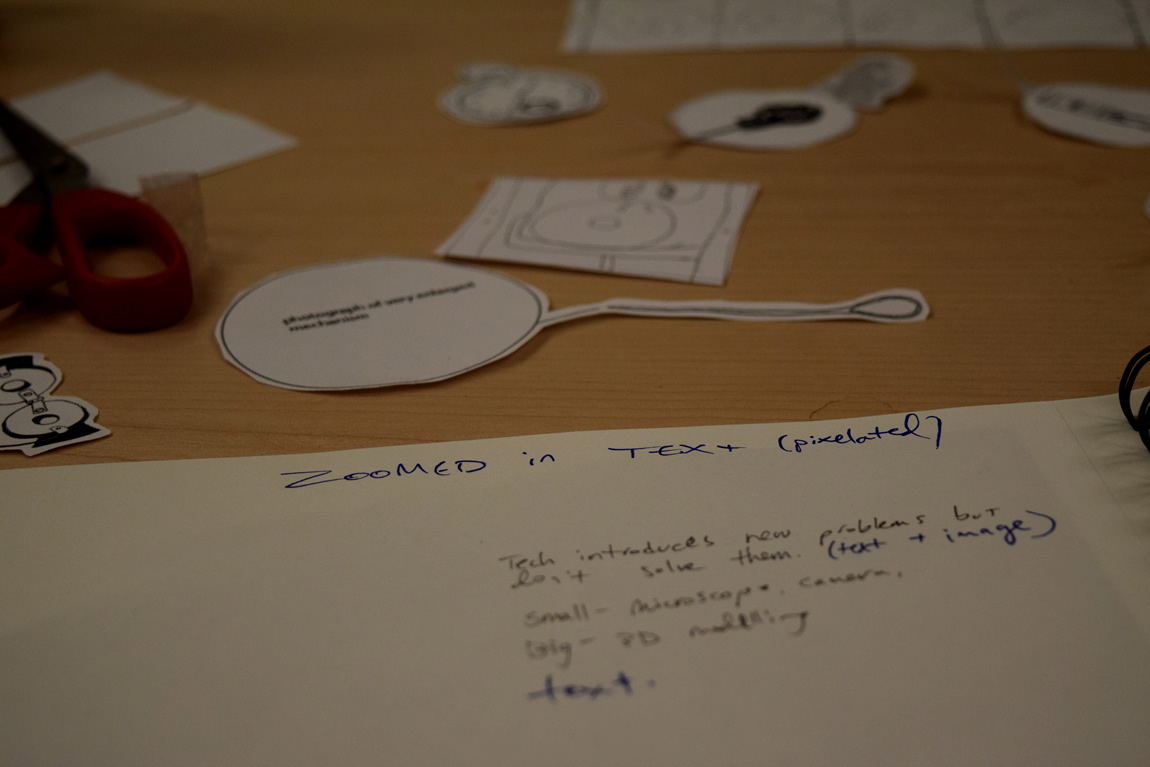 photograph of very enlarged
mechanism
ZOOMED in TEXT (pixelated)
Tech introduces new problems but
don't solve them. (text + image)
small - microscope, camera,
big - 3D modelling
text.